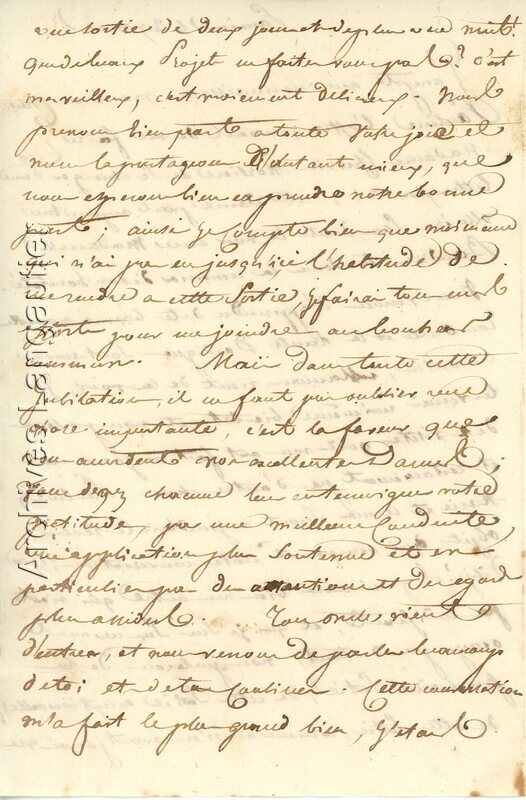 une sortie de deux jours et deplus une nuit!
que de beaux Projets ne faites vous pas? c'est
merveilleux, c'est vraiement délicieux. Nous
prenons bien part a toute votre joie et
nous la partageons d'autant mieux, que
nous esperons bien en prendre notre bonne
part; ainsi je Compte bien que moi même
qui n'ai pas eu jusqu'ici l'habitude de
me rendre a cette Sortie, je fairai tous mes
efforts pour me joindre au bonheur
commun. Mais dans toute cette
jubilation, il ne faut pas oublier une
chose importante, c'est la faveur que
vous accordent vos excellentes Dames;
vous devez chacune leur en temoigner votre
gratitude, par une meilleure Conduite,
une application plus Soutenue et en
particulier par des attentions et des egards
plus assidus. Ton oncle vient
d'entrer, et nous venons de parler beaucoup
de toi et de ta Cousine. Cette conversation
m'a fait le plus grand bien, j'etais
Archives Lamautier